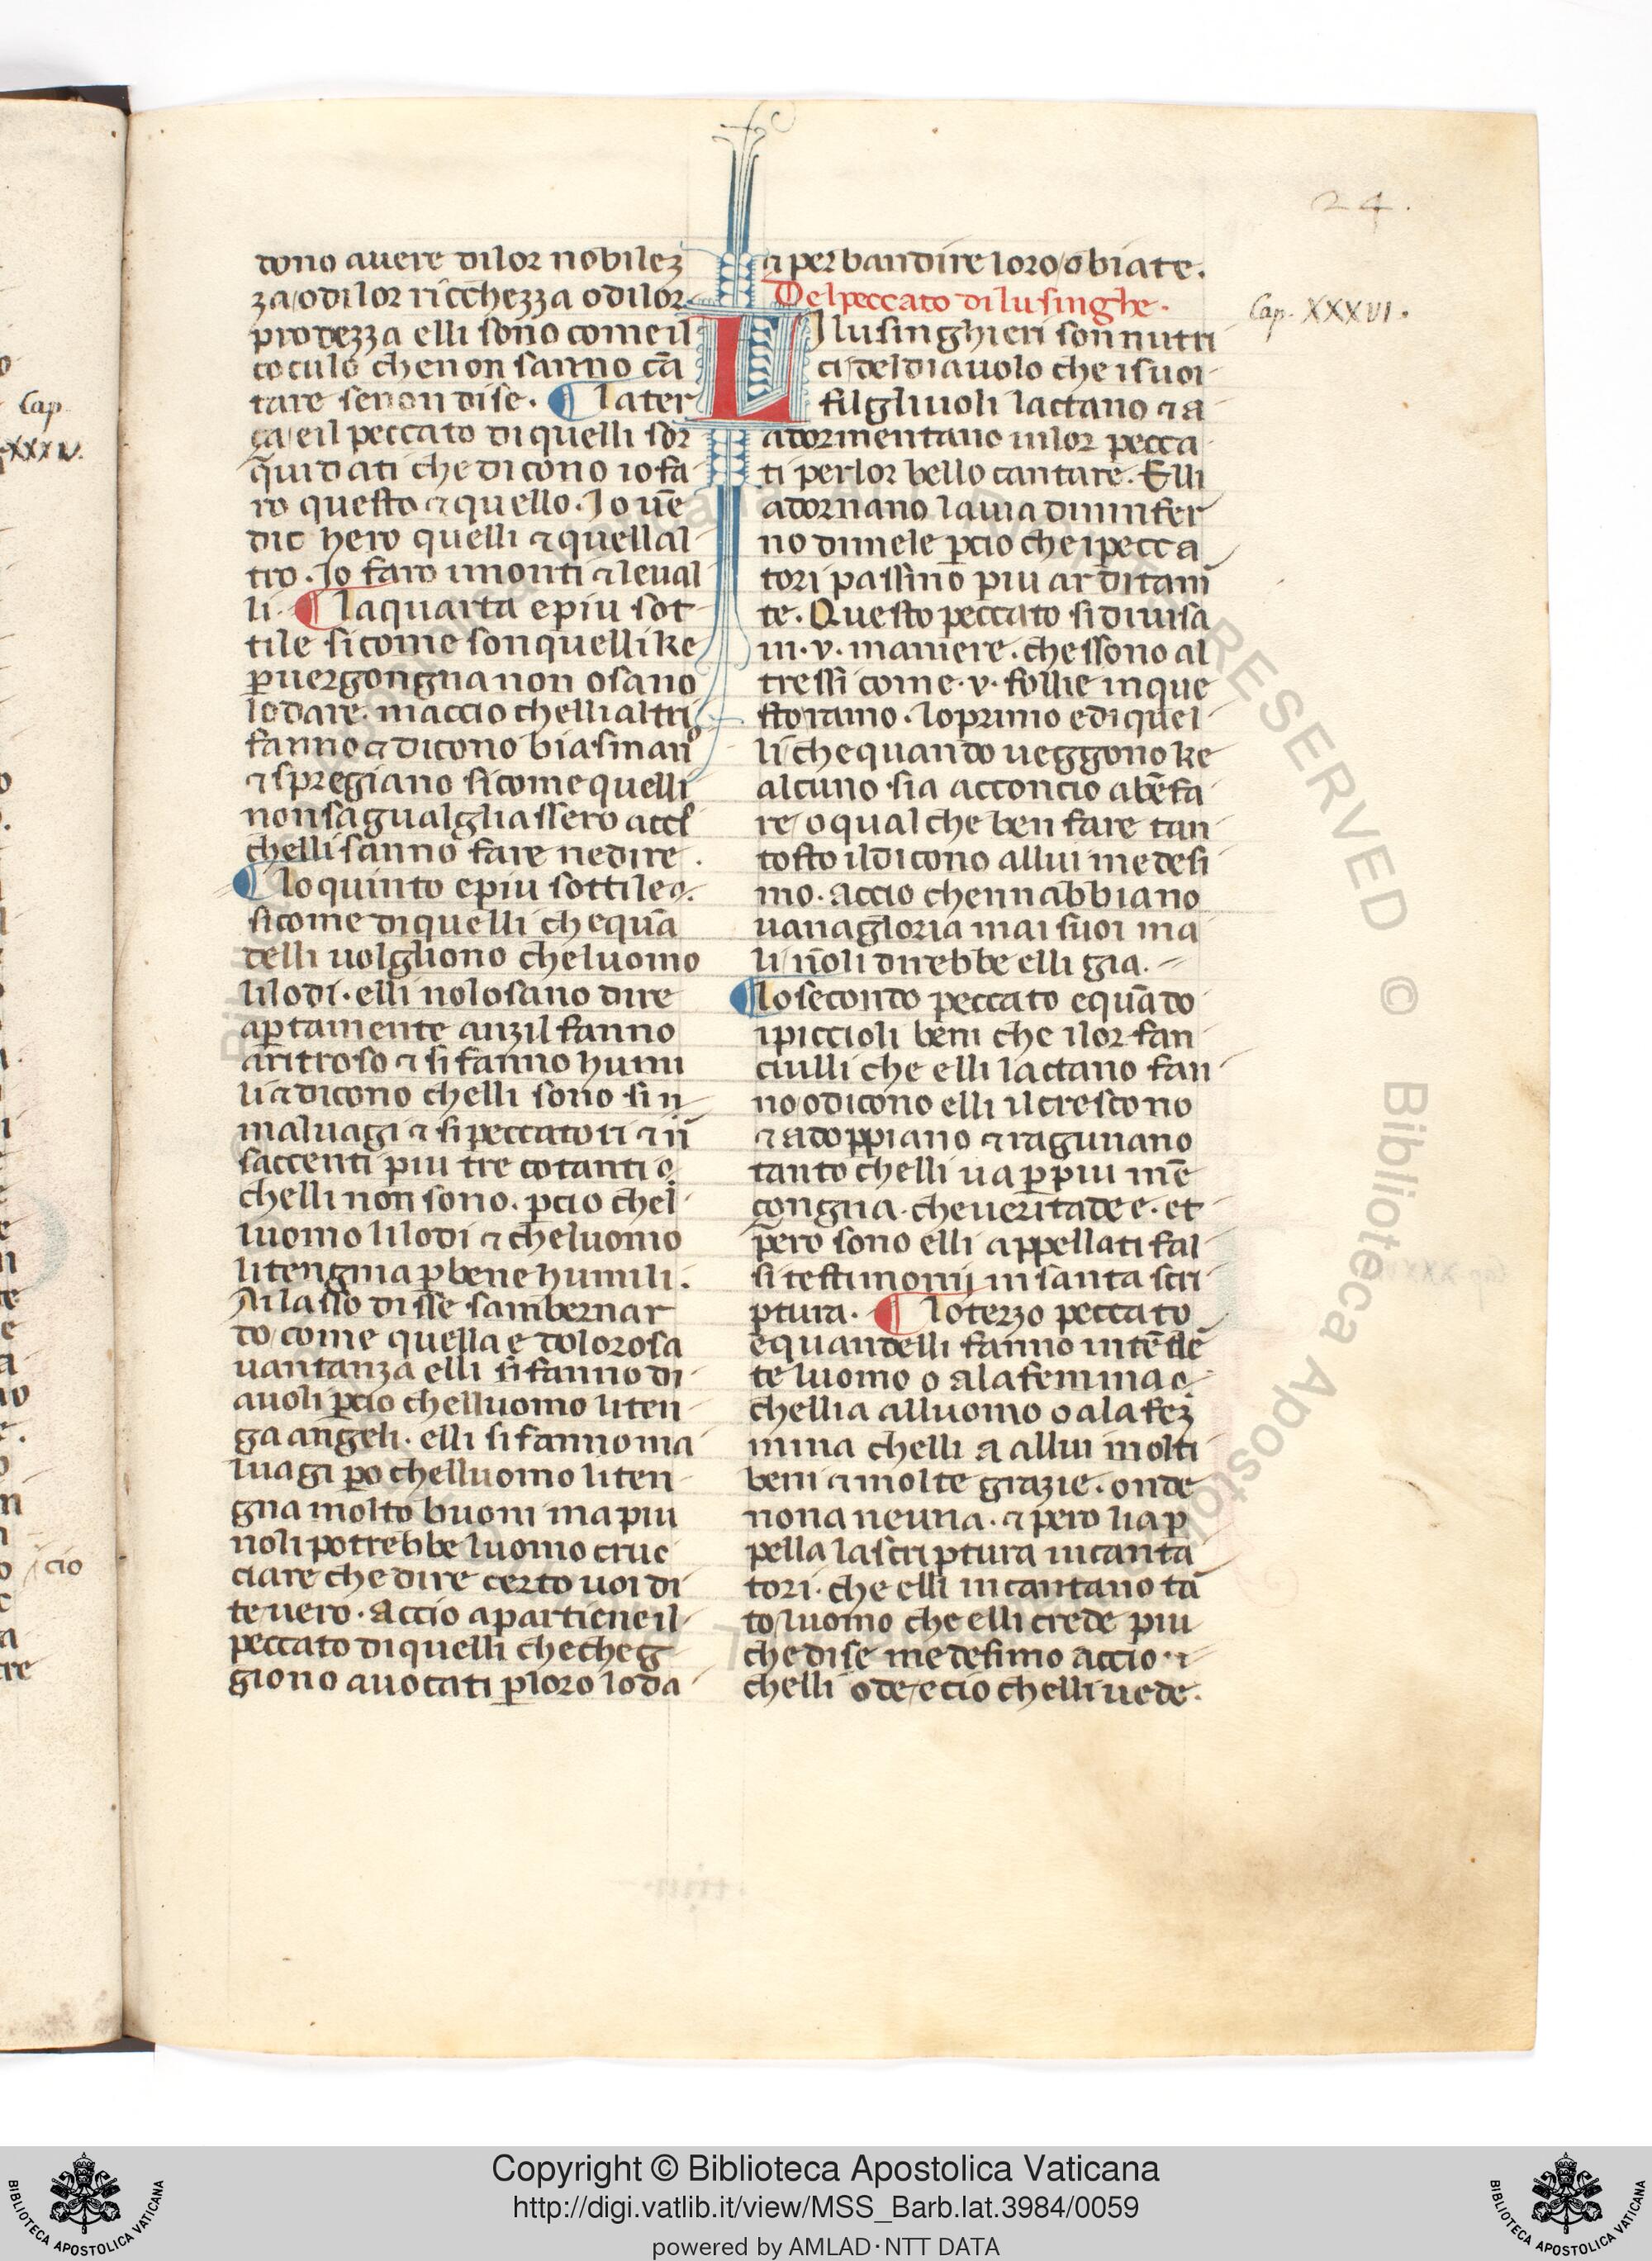 24.
dono auere dilor nobilez
za/odilor ricchezza odilor
prodezza elli sono comeil
coculo chenon sanno cā
tare senon dise. ¶ later
ça/eil peccato diquelli sor
quidati che dicono iofa
ro questo ⁊ quello. Io uē
dic hero quelli ⁊ quellal
tro. Io faro imonti ⁊ leual
li. ¶ laquarta epiu sot
tile sicome sonquellike
ꝑuergongna non osano
lodare. maccio chellialtri
fanno ⁊ dicono biasimanº
⁊ spregiano sicomequelli
nonsagualgliassero accƚ
chelli sanno fare nedire.
¶ loquinto epiu sottile
sicome diquelli chequā
delli uolgliono cheluomo
lilodi. elli nolosano dire
aꝑtamente anzil fanno
aritroso ⁊ sifanno humi
li ⁊ dicono chelli sono sin
maluagi ⁊ sipeccatori ⁊ īī
saccenti piu tre cotanti
chelli non sono. ꝑcio chel
luomo lilodi ⁊ cheluomo
litengnia ꝑbene humili.
Ai lasso disse sambernar
do/come quella e dolorosa
uantanza elli sifanno di
auoli ꝑcio chelluomo liten
ga angeli. elli sifannoma
luagi ꝑo chelluomo liten
gna molto buoni mapiu
nolipotrebbe luomo cruc
ciare chedire certo uoidi
teuero. accio apartieneil
peccato diquelli checheg
giono auocati ꝑloro loda
⁊ perbandire loro/obiate.
Delpeccato dilusinghe.
Cap. XXXVI.
LIlusinghieri sonnutri
ci/deldiauolo che isuoi
filgliuoli lactano ⁊ a
adormentano inlor pecca
ti perlor bello cantare. Elli
adornano lauia dininfer
no dimele ꝑcio che ipecca
tori passino piu arditam̄
te. Questo peccato sidiuisa
in .v. maniere. chessono al
tressi come .v. follie inque
storamo. loprimo ediquel
li chequando ueggono ke
alcuno sia acconcio abēfa
re/o qualche ben fare tan
tosto ildicono allui medesi
mo. accio chennabbiano
uanagloria mai suoi ma
li/nōli direbbe elli gia.
¶ losecondo peccato equādo
ipiccioli beni che ilor fan
ciulli che elli lactano fan
noodicono elli ilcrescono
⁊ adoppiano ⁊ ragunano
tanto chelli ua ꝑpiu mē
çongna. cheueritade e. et
pero sono elli appellati fal
si testimonij insanta scri
ptura. ¶ loterzo peccato
equandelli fanno intēdē
te luomo o alafemina
chellia alluomo oalafez
mina chelli a allui molti
beni ⁊ molte grazie. onde
nona neuna. ⁊ pero liaꝑ
pella lascriptura incanta
tori. che elli incantano tā
to/luomo che elli crede piu
chedise medesimo accio
chelli ode/ecio chelliuede.
Cap
XXXIV.
cio
Copyright © Biblioteca Apostolica Vaticana
http://digi.vatlib.it/view/MSS_Barb.lat.3984/0059
powered by AMLAD·NTT DATA
BIBLIOTECA APOSTOLICA VATICANA
BIBLIOTECA APOSTOLICA VATICANA